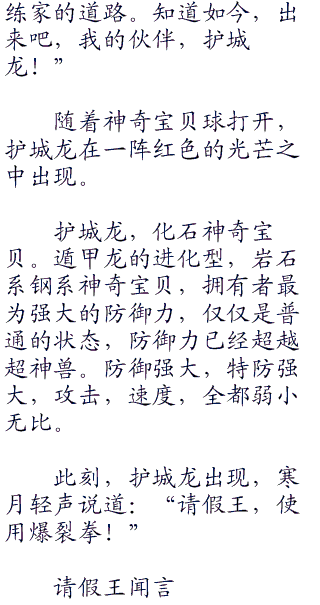 练家的道路。知道如今，出
来吧，我的伙伴，护城
龙！”
随着神奇宝贝球打开，
护城龙在一阵红色的光芒之
中出现。
护城龙，化石神奇宝
贝。遁甲龙的进化型，岩石
系钢系神奇宝贝，拥有者最
为强大的防御力，仅仅是普
通的状态，防御力已经超越
超神兽。防御强大，特防强
大，攻击，速度，全都弱小
无比。
此刻，护城龙出现，寒
月轻声说道：“请假王，使
用爆裂拳！”
请假王闻言